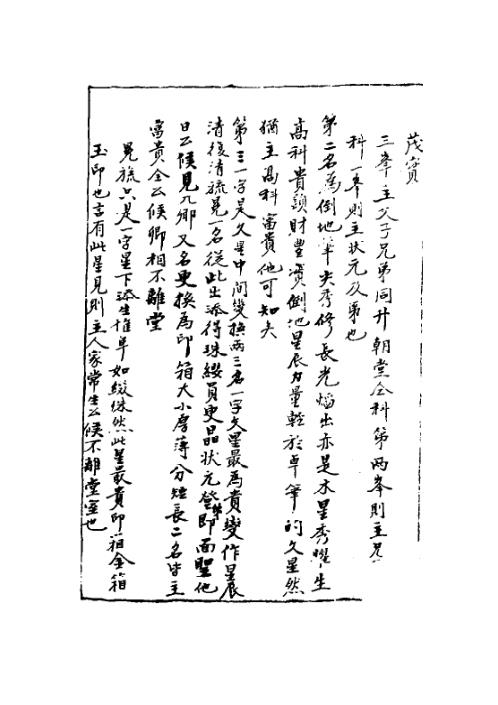 茂實
三峯主父子兄弟同升朝堂仝科第两峯則主兄
科一峯則主状元及第也
第二名為倒地筆尖秀修長光熖出亦是木星秀曜生
高科貴顕財豊實倒地星辰力量輕於卓筆的文星然
猶主高科富貴他可知矣
第三一字是文星中間變換两三名一字文星最為貴變作星辰
清復清旒冕一名從此出添得珠綬員更晶状元登第即面聖他
日公候見九卿又名更換為印箱大小厚薄分短長二名皆主
富貴全公候卿相不離堂
冕旒只是一字星下添生堆阜如綴珠然此星最貴印箱金箱
玉印也言有此星見則主人家常生公候不離堂室也